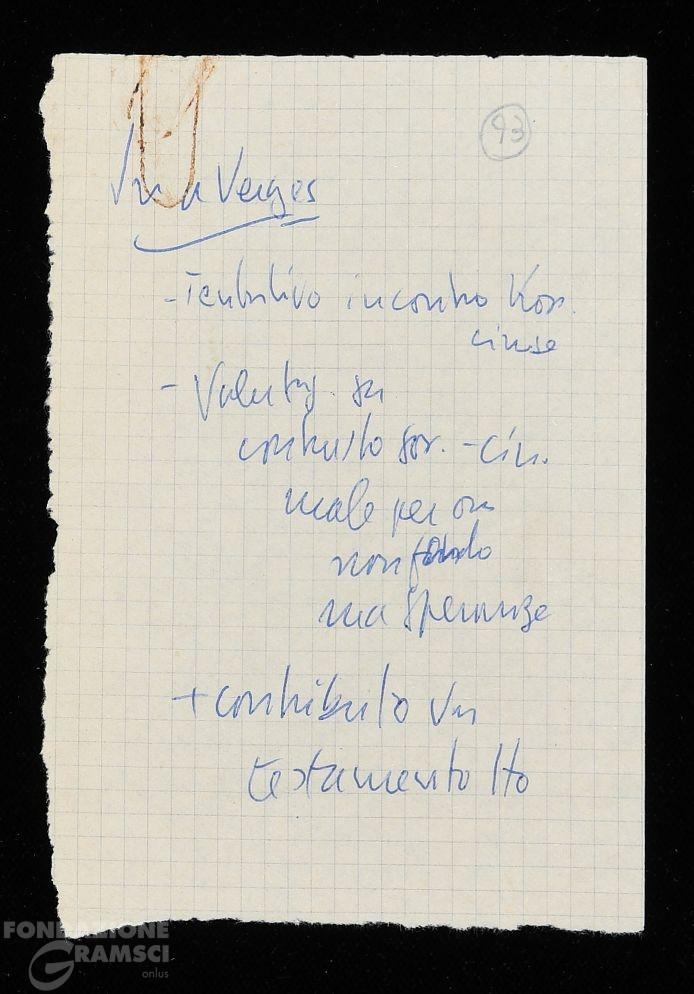 93
Vn a Verges
- Tentativo incontro Kos.
cinse
- Valutaz. su
contrasto sov. - cin.
male per ora
non fondo
ma speranze
+ contributo Vn
testamento Ho
FONDAZIONE
GRAMSCI
onlus